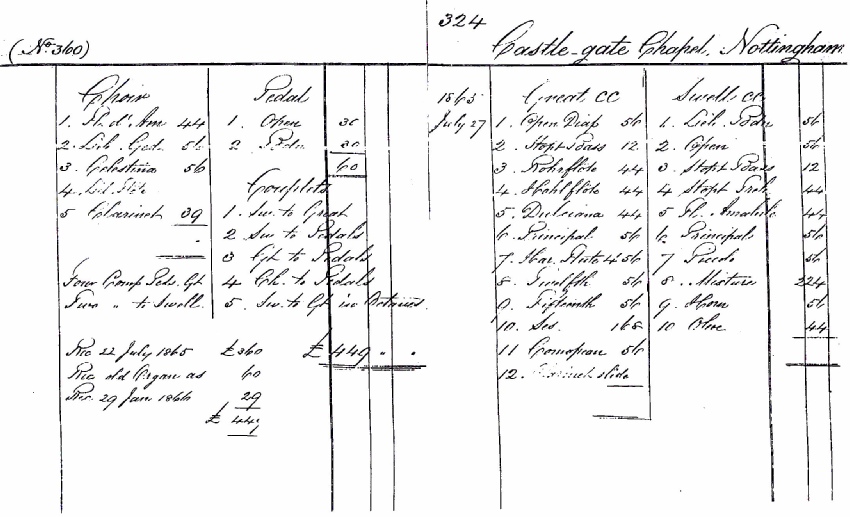 (No. 360)
Choir
1. Fl. d'Am 44
2. Lieb. Ged. 56
3. Celestina 56
4.
5 Clarinet 39
Four Comp Peds. Gt
Two " to Swell.
Pedal
1. Open 30
2. 30
60
Couplets
1. Sw. to Great
2 Sw to Pedals
3 Gt to Pedals
4 Ch. to Pedals
5. Sw. to Gt in Octaves.
Rec 22 July 1865 £360
Rec old Organ as 60
Rec. 29 Jan 1866 29
£ 449
£ 449 " "
324
Castle-gate Chapel, Nottingham
1865
July 27
Great CC
1. Open Diap 56
2. Stopt Bass 12
3. Rohrflöte 44
4. Hohlflöte 44
5. Dulciana 44
6. Principal 56
7. Har. Flute 4 56
8. Twelfth 56
9. Fifteenth 56
10. Ses. 168
11 Cornopean 56
12. slide
Swell CC
1. Lieb. Bodn 56
2. Open 56
3. Stopt Bass 12
4 Stopt 44
5 Fl. Amabile 44
6. Principal 56
7 Piccolo 56
8.. Mixture 224
9 Horn 56
10 Oboe 44